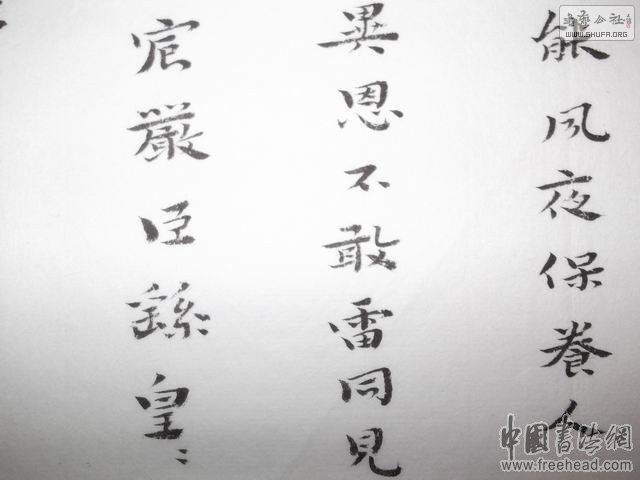 能夙夜保養人
異恩不敢雷同見
宸嚴臣繇皇〻
書藝公社
WWW.SHUFA.ORG
中國書法網
www.freehead.com